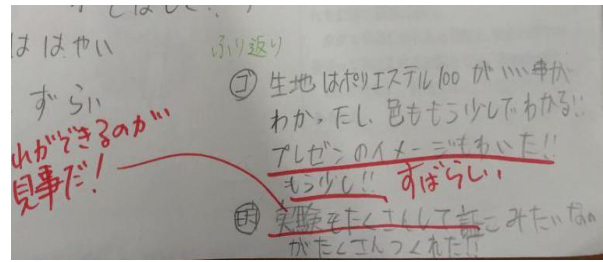 はやい
ずらい
れができるのがい
見事だ!
ふり返り
ゴ 生地はポリエステル100がいい事が
わかったし、色ももう少しでわかる!!
プレゼンのイメージもわいた!!
もう少し!! すばらしい
実験もたくさんして証こみたいなの
がたくさんつくれた!!